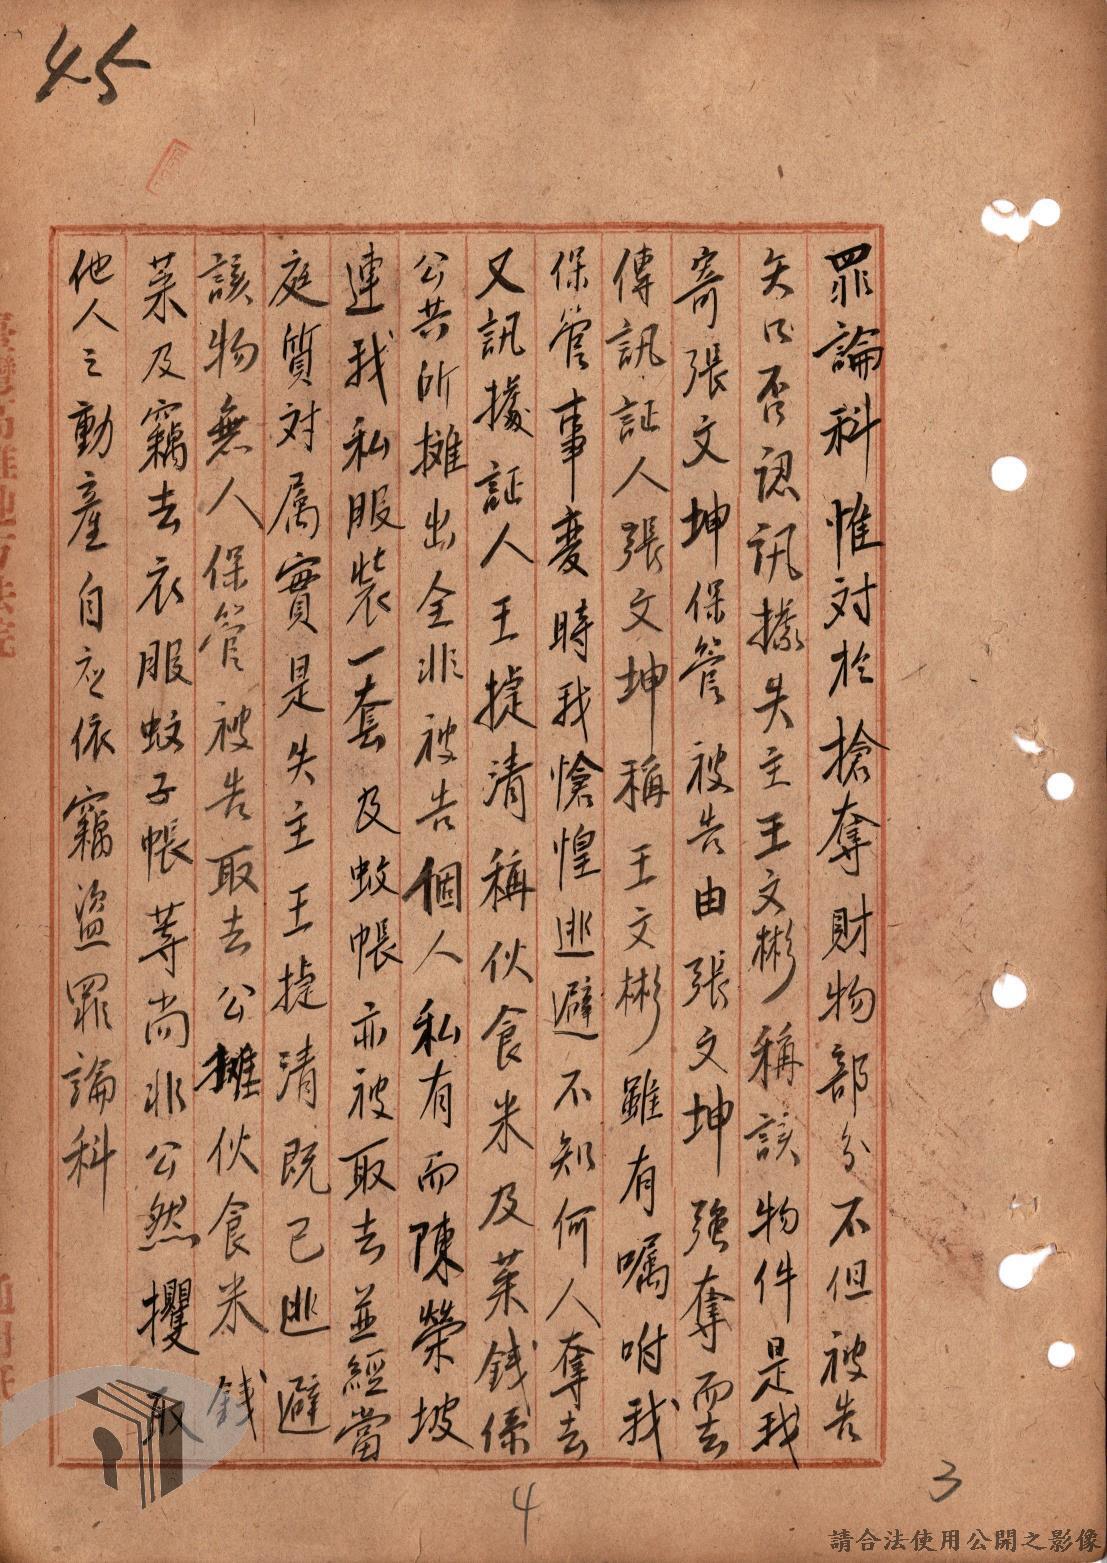 45
罪論科惟对於搶奪財物部分不但被告
矢口否認訊據失主王文彬稱該物件是我
寄張文坤保管被告由張文坤強奪而去
傳訊証人張文坤稱王文彬雖有嘱咐我
保管事変時我愴惶逃避不知何人奪去
又訊據証人王捷清稱伙食米及菜錢係
公共所攤出全非被告個人私有而陳榮坡
連我私服裝一套及蚊帳亦被取去並經當
庭質对属實是失主王捷清既已逃避
該物無人保管被告取去公攤伙食米錢
菜及竊去衣服蚊子帳等尚非公然攫取
他人之動產自应依竊盜罪論科
4
3
請合法使用公開之影像